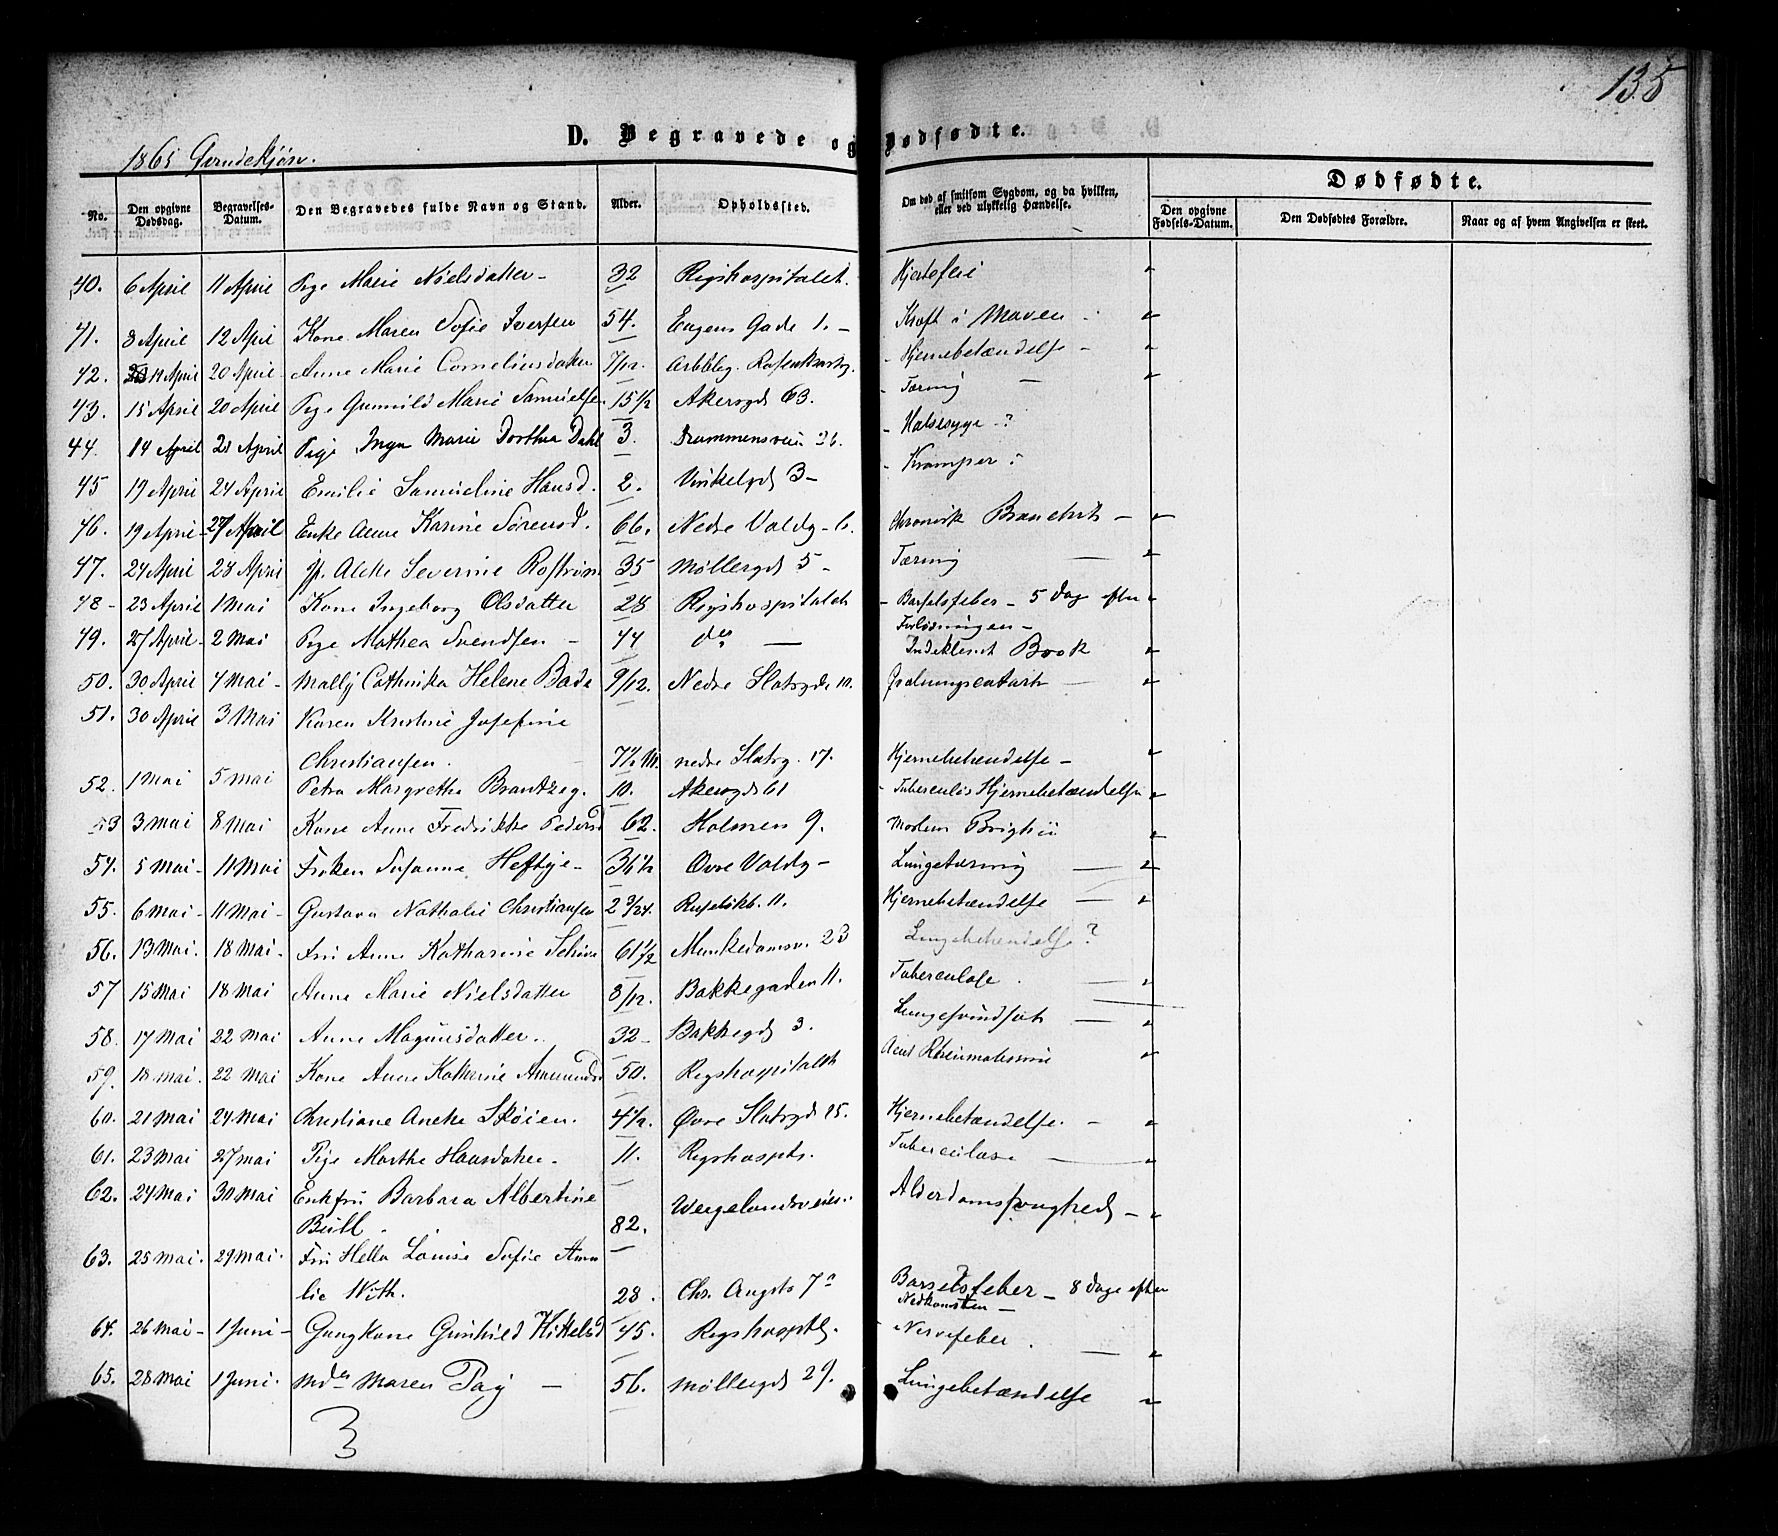 135
D. Begravede og Dødfødte.
1865
No. Den opgivne Dødsdag. Begravelses-Datum. Den Begravedes fulde Navn og Stand. Alder. Opholdssted. Om død af smitsom Sygdom, og da hvilken, eller ved ulykkelig Hændelse. Dødfødte. Den opgivne Fødsels-Datum. Den Dødfødtes Forældre. Naar og af hvem Angivelsen er skeet.
40. 6 April 11 April Pige Marie Nielsdatter - 32 Rigshospitalet. Hjertefeil "
41. 8 April 12 April Kone Maren Sofie Iversen 54. Eugens Gade 1. - Kræft i Maven - "
42. 14 April 20 April Anne Marie Corneliusdatter 7/12. Arbbbg. Hjernebetændelse - "
43. 15 April 20 April Pige Gunnild Marie Samuelsen 15 1/2 Akersgd 63. Tæring - "
44. 14 April 21 April Pige Inga Marie Dorthea Dahl 3. Drammensvein 26. Halssyge ?
45 19 April 24 April Emilie Samueline Hansd. 2. Vinkelgd 3 - Kramper ?
46. 19 April 27 April Enke Anne Karine Sørensd. 66. Nedre Voldg - 6. Chronisk Bronchit - "
47. 24 April 28 April Severine 35 Møllergd 5 - Tæring - "
48 - 23 April 1 Mai Kone Ingeborg Olsdatter 28 Rigshospitalet - Barselsfeber - 5 Dag efter "
Forløsningen -
49. 27 April - 2 Mai Pige Mathea Svendsen - 44 do - Indeklemt Brok "
50. 30 April 4 Mai - Mally Cathinka Helene Bade 9/12. Nedre Slotsgd 10. "
51. 30 April 3 Mai Karen Kristine Josefine
Christiansen. 7 1/2 M. nedre Slotsg. 17. Hjernebetændelse - "
52. 1 Mai 5 Mai Petra Margrethe Brantzeg. 10. Akersgd 61 - Tuberculøs Hjernebetændelse "
53 3 Mai 8 Mai Kone Anne Fredrikke Pedersd 62. Holmen 9. Morbus Brightii "
54. 5 Mai - 11 Mai Frøken Susanne Heftye - 36 1/2 Øvre Voldg - Lungetæring - "
55. 6 Mai - 11 Mai - Gustava Nathalie Christiansen 2 9/24. Ruseløkb. 11. Hjernebetændelse - "
56. 13 Mai. 18 Mai - Fru Anne Katharine 61 1/2 Munkedamsv. 23 Lungebetændelse ?
57 15 Mai 18 Mai Anne Marie Nielsdatter 8/12. Bakkegaden 11. Tuberculose. - "
58. 17 Mai 22 Mai Anne Magnusdatter. 32 - Bakkegd 3. Lungesvindsot - "
59. 18 Mai. 22 Mai Kone Anne Katharine Amundsd 50. Rigshospitalet Acut Rheumatisme "
60. 21 Mai 24 Mai Christiane Anette Skøien. 4 1/2. Øvre Slotsgd 25. Hjernebetændelse. - "
61. 23 Mai 27 Mai Pige Marthe Hansdatter. 11. Rigshospit. Tuberculose - "
62. 24 Mai 30 Mai Enkefru Barbara Albertine
Bull. 82. Wergelandsveien. Alderdomssvaghed - "
63. 25 Mai. 29 Mai. Fru Hella Louise Sofie Ama
lie With. 28. Chr. Augsts 7 a Barselsfeber - 8 Dage efter
Nedkomsten -
64. 26 Mai - 1 Juni - Gunhild 45. Rigshosptl. Nervefeber. - "
65. 28 Mai 1 Juni. Mdm Maren - 56. Møllergd 29. Lungebetændelse "
3